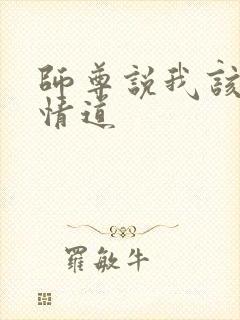 師尊説我該
情道
羅敏牛